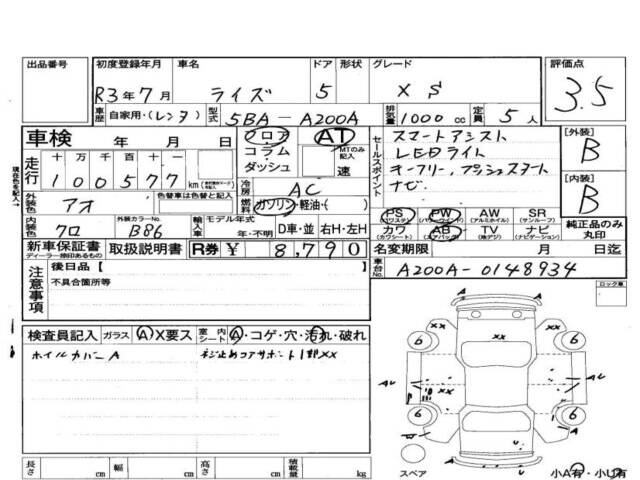 出品番号 初度登録年月 車名 ドア 形状 グレード 評価点
R3年7月 ライズ 5 X S 3.5
車歴 自家用・(レンタ) 型式 5BA-A200A 排気量 1000cc 定員 5人
車検 年 月 日 フロア AT
コラム MTのみ記入
ダッシュ 速
セールスポイント スマートアシスト
LEDライト
キーフリー、プッシュスタート
ナビ
[外装] B
[内装] B
走行 十 万 千 百 十 一
100577 km
冷房 AC
燃料 ガソリン・軽油・( )
外装色 アオ 色替車は色替と記入
内装色 クロ 外装カラーNo. B86 輸入車 モデル年式 年・不明 D車・並 右H・左H
PS (パワステ) PW (パワーウィンドウ) AW (アルミホイル) SR (サンルーフ)
カワ (カワシート) AB (エアバッグ) TV (地デジ) ナビ (ナビゲーション)
純正品のみ丸印
新車保証書 ディーラー捺印あるもの 取扱説明書 R券 ¥ 8,790 名変期限 月 日迄
車台No. A200A-0148934
現在色を記入→
注意事項 後日品【
不具合箇所等
ロック車
検査員記入 ガラス A・X要ス 室内シート A・コゲ・穴・汚れ・破れ
ホイルカバーA
ネジ止めコアサポート1部XX
XX XX
A A
AU AU
6 6
6 6
スペア 小A有・小U有
長さ cm 幅 cm 高さ cm 積載量 kg